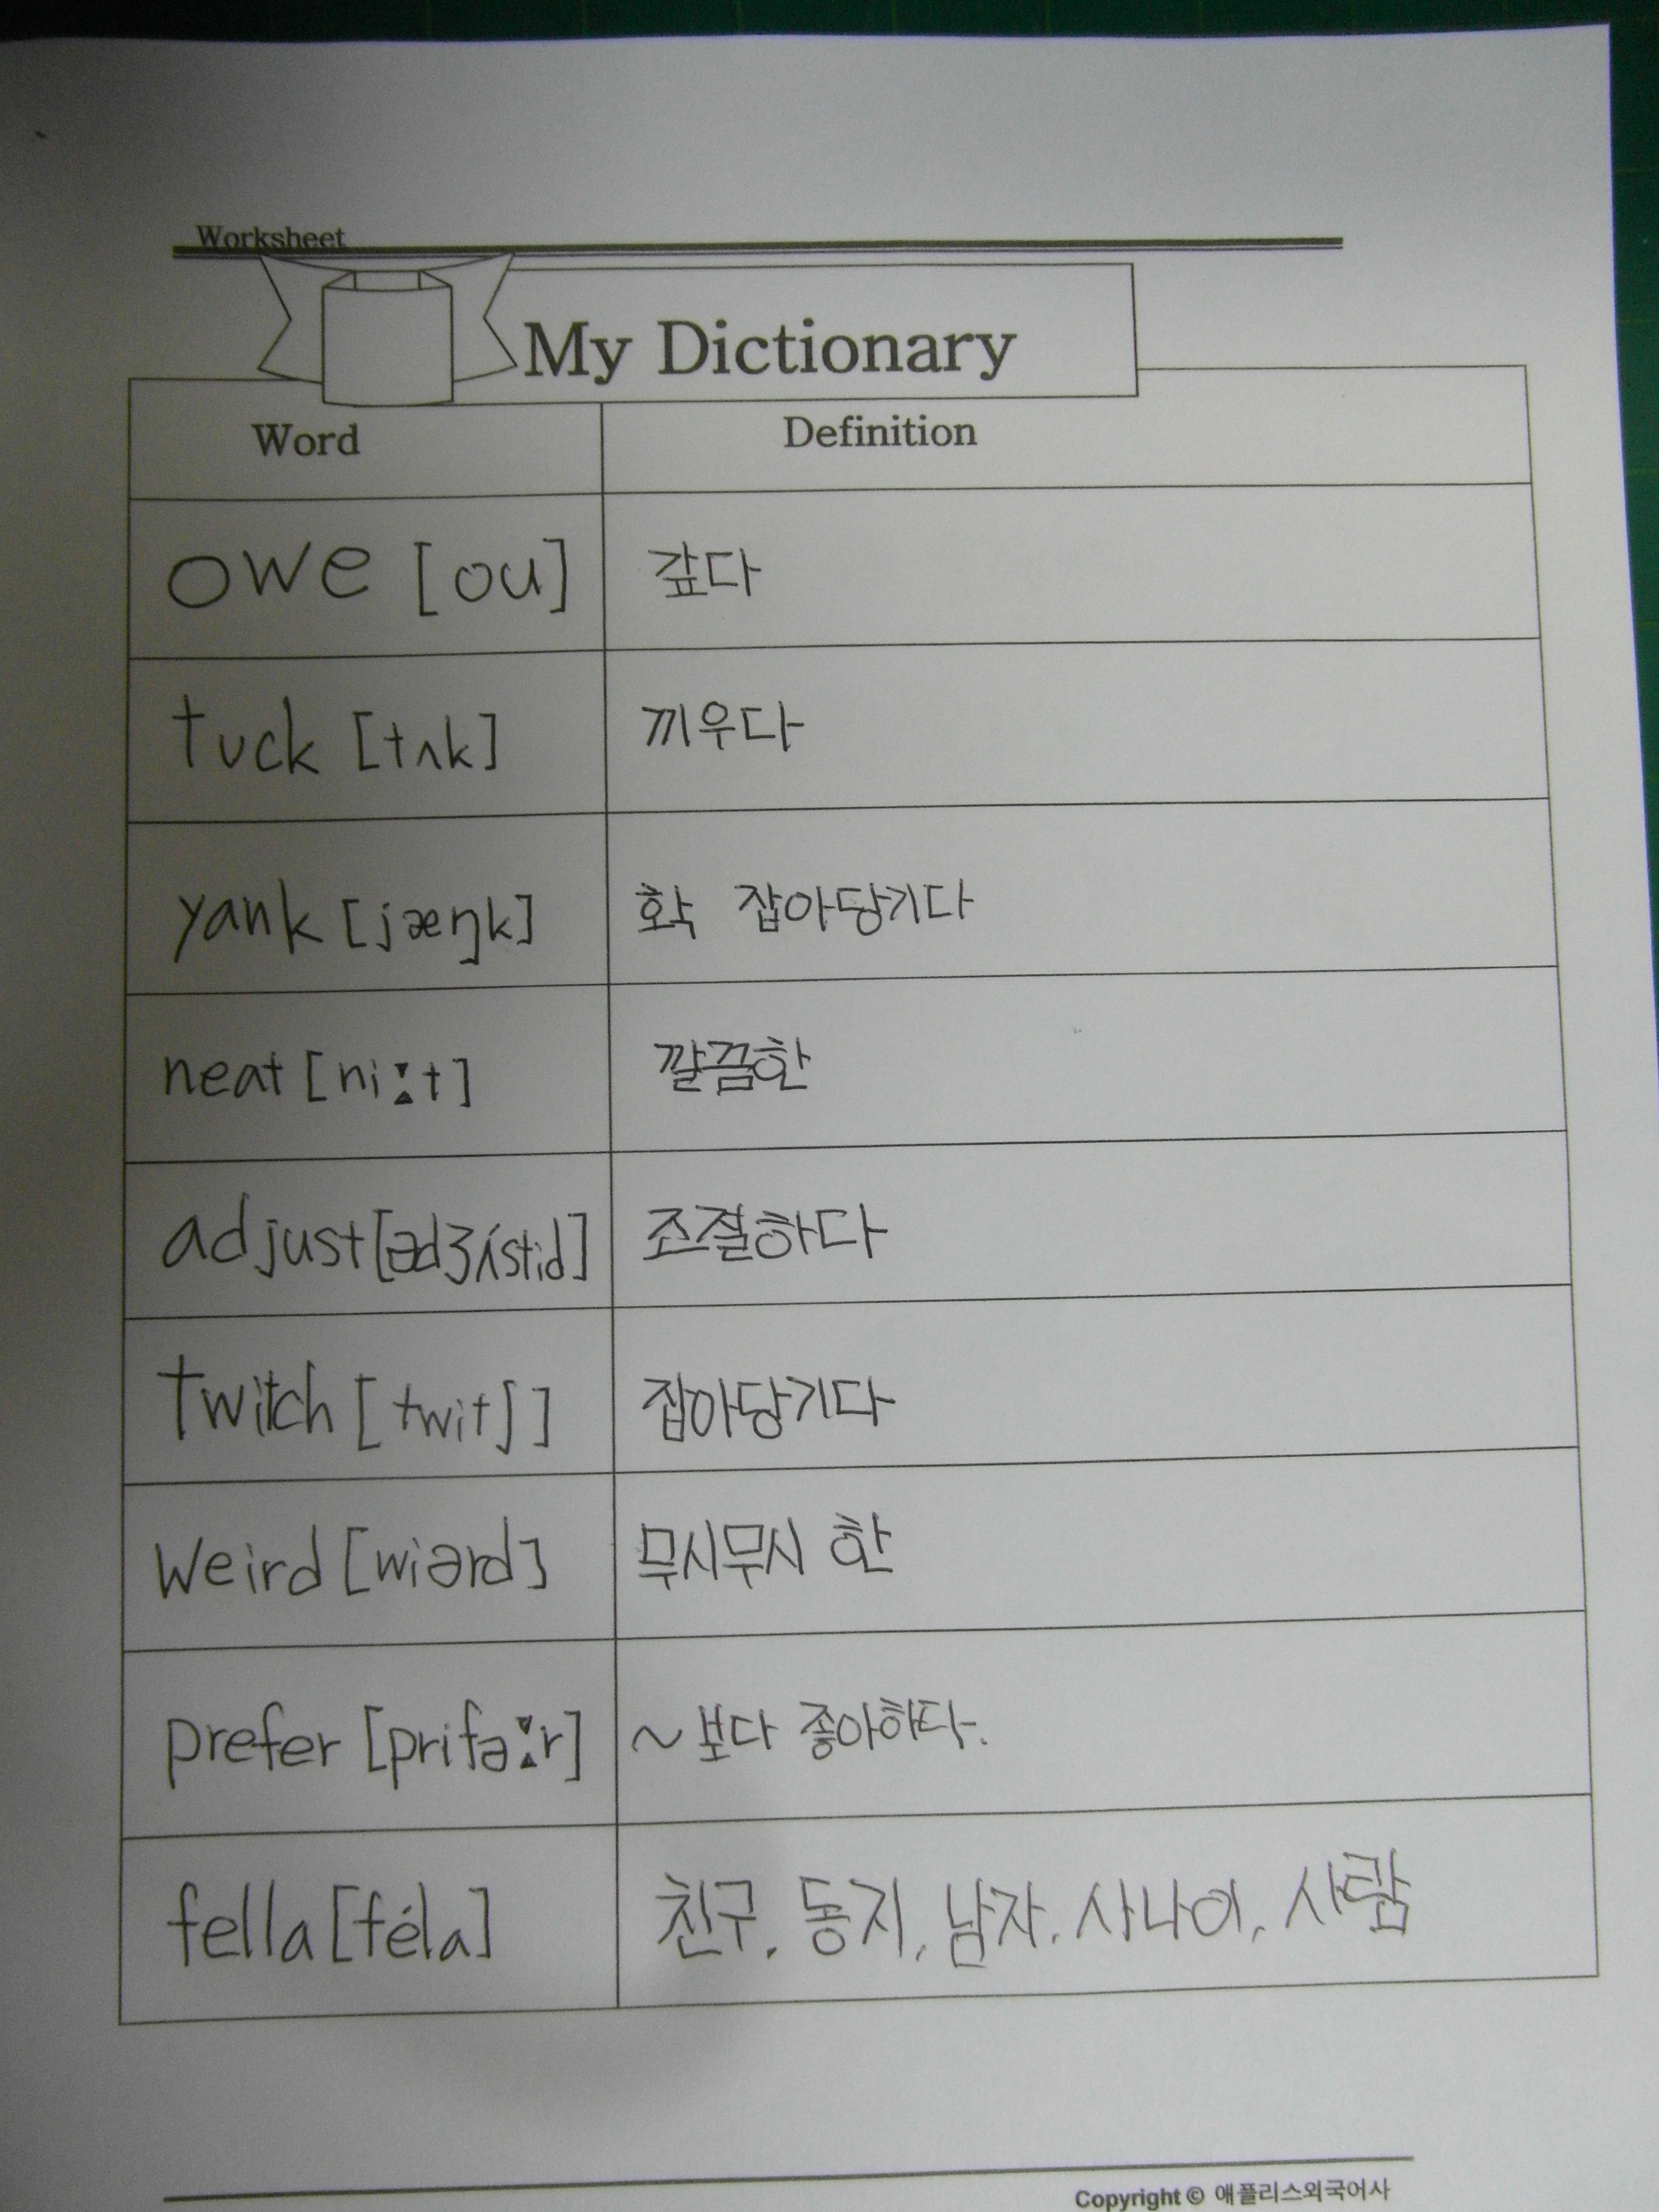 Worksheet
My Dictionary
Word Definition
owe [ou] 갚다
tuck [tʌk] 끼우다
yank [jæŋk] 확 잡아당기다
neat [niːt] 깔끔한
adjust [ədʒʌ́stid] 조절하다
twitch [twitʃ] 잡아당기다
weird [wiərd] 무시무시 한
prefer [prifəːr] ~보다 좋아하다.
fella [féla] 친구, 동지, 남자, 사나이, 사람
Copyright © 애플리스외국어사